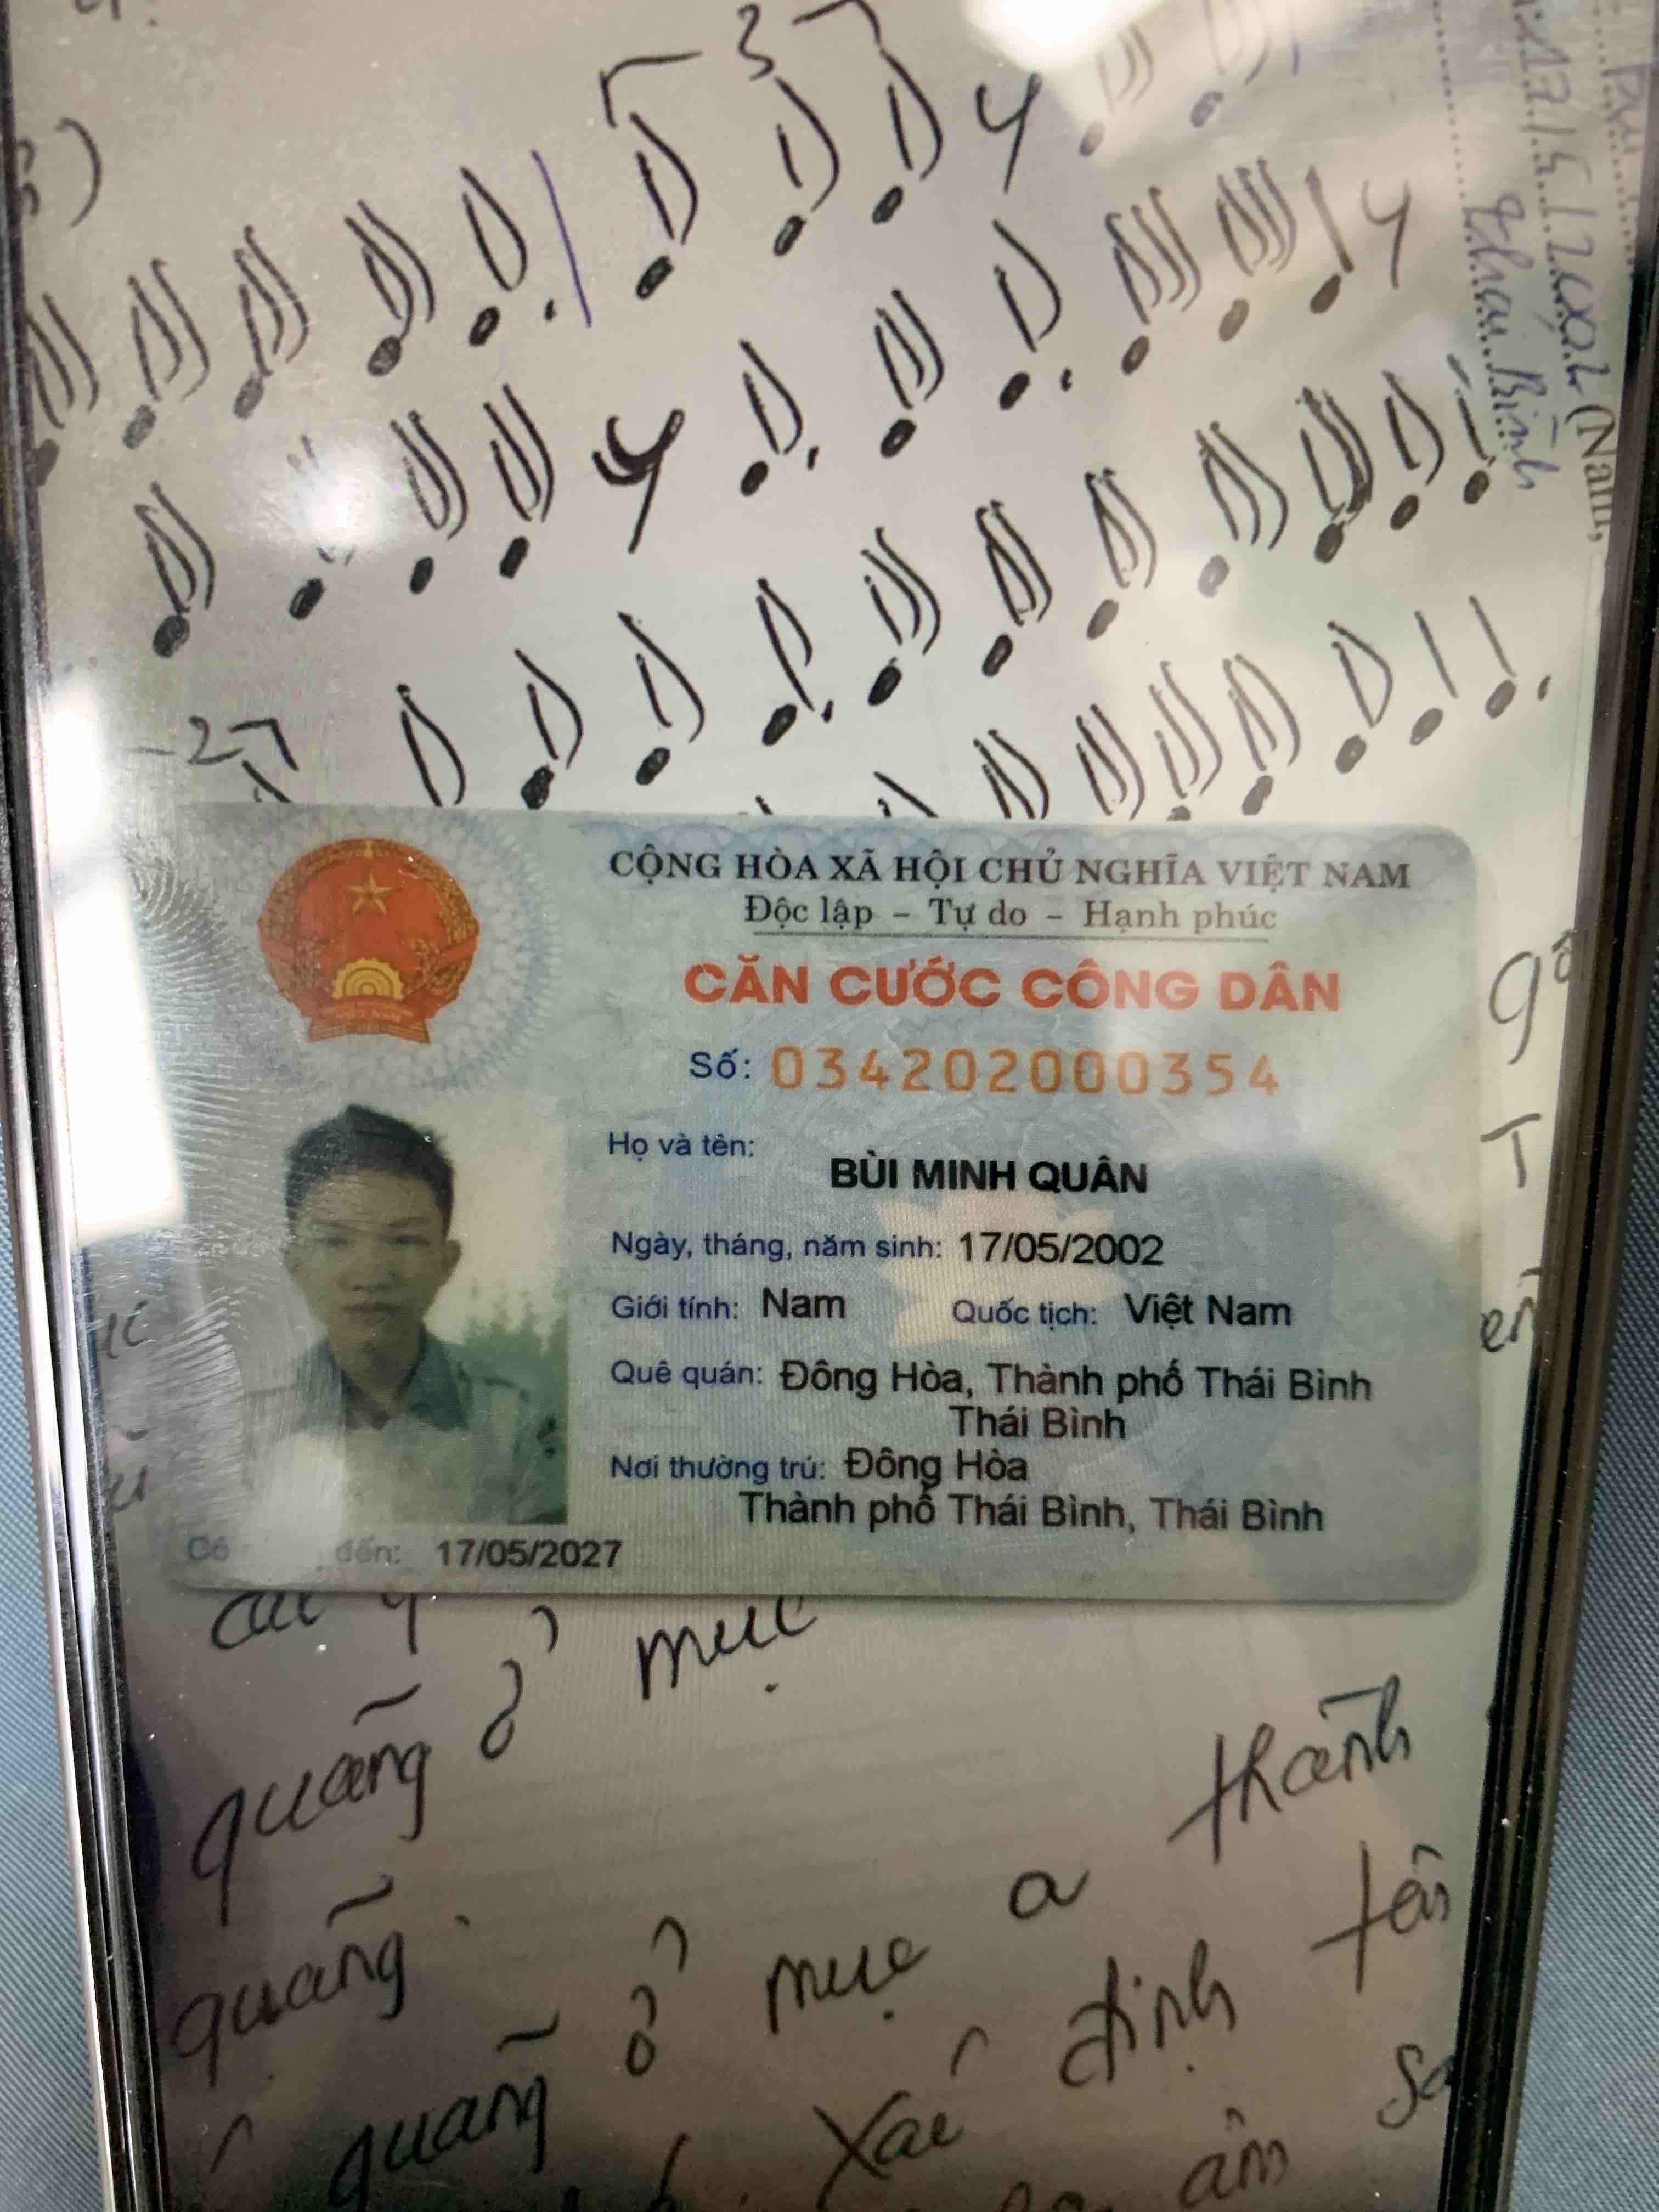 3
4
17/5/2002 (Nam,
Thái Bình
4
4
2
CỘNG HÒA XÃ HỘI CHỦ NGHĨA VIỆT NAM
Độc lập – Tự do – Hạnh phúc
CĂN CƯỚC CÔNG DÂN
Số: 034202000354
Họ và tên:
BÙI MINH QUÂN
Ngày, tháng, năm sinh: 17/05/2002
Giới tính: Nam Quốc tịch: Việt Nam
Quê quán: Đông Hòa, Thành phố Thái Bình
Thái Bình
Nơi thường trú: Đông Hòa
Thành phố Thái Bình, Thái Bình
Có đến: 17/05/2027
mục
quãng ở
thành
quãng
quãng ở mục a
xác định tên
âm